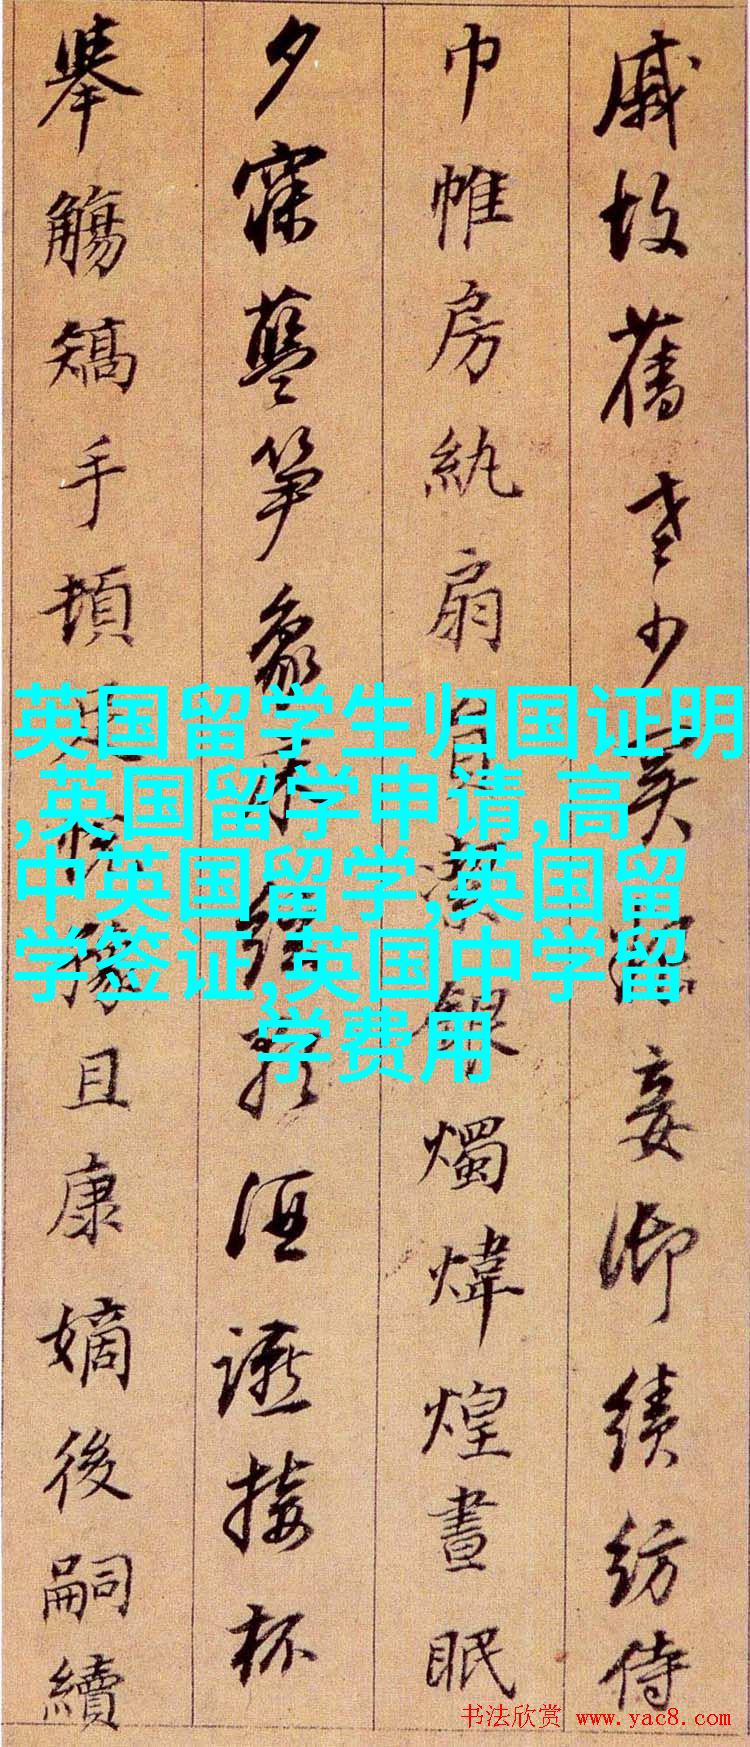 戚故舊老少異粮妾御績紡侍
巾帷房紈扇員潔銀燭煒煌晝眠
夕寐藍笋象床絃歌酒讌接杯
舉觴矯手頓足悅豫且康嫡後嗣續
英国留学生归国证明
,英国留学申请,高
中英国留学,英国留
学签证,英国中学留
学费用
书法欣赏 www.yac8.com